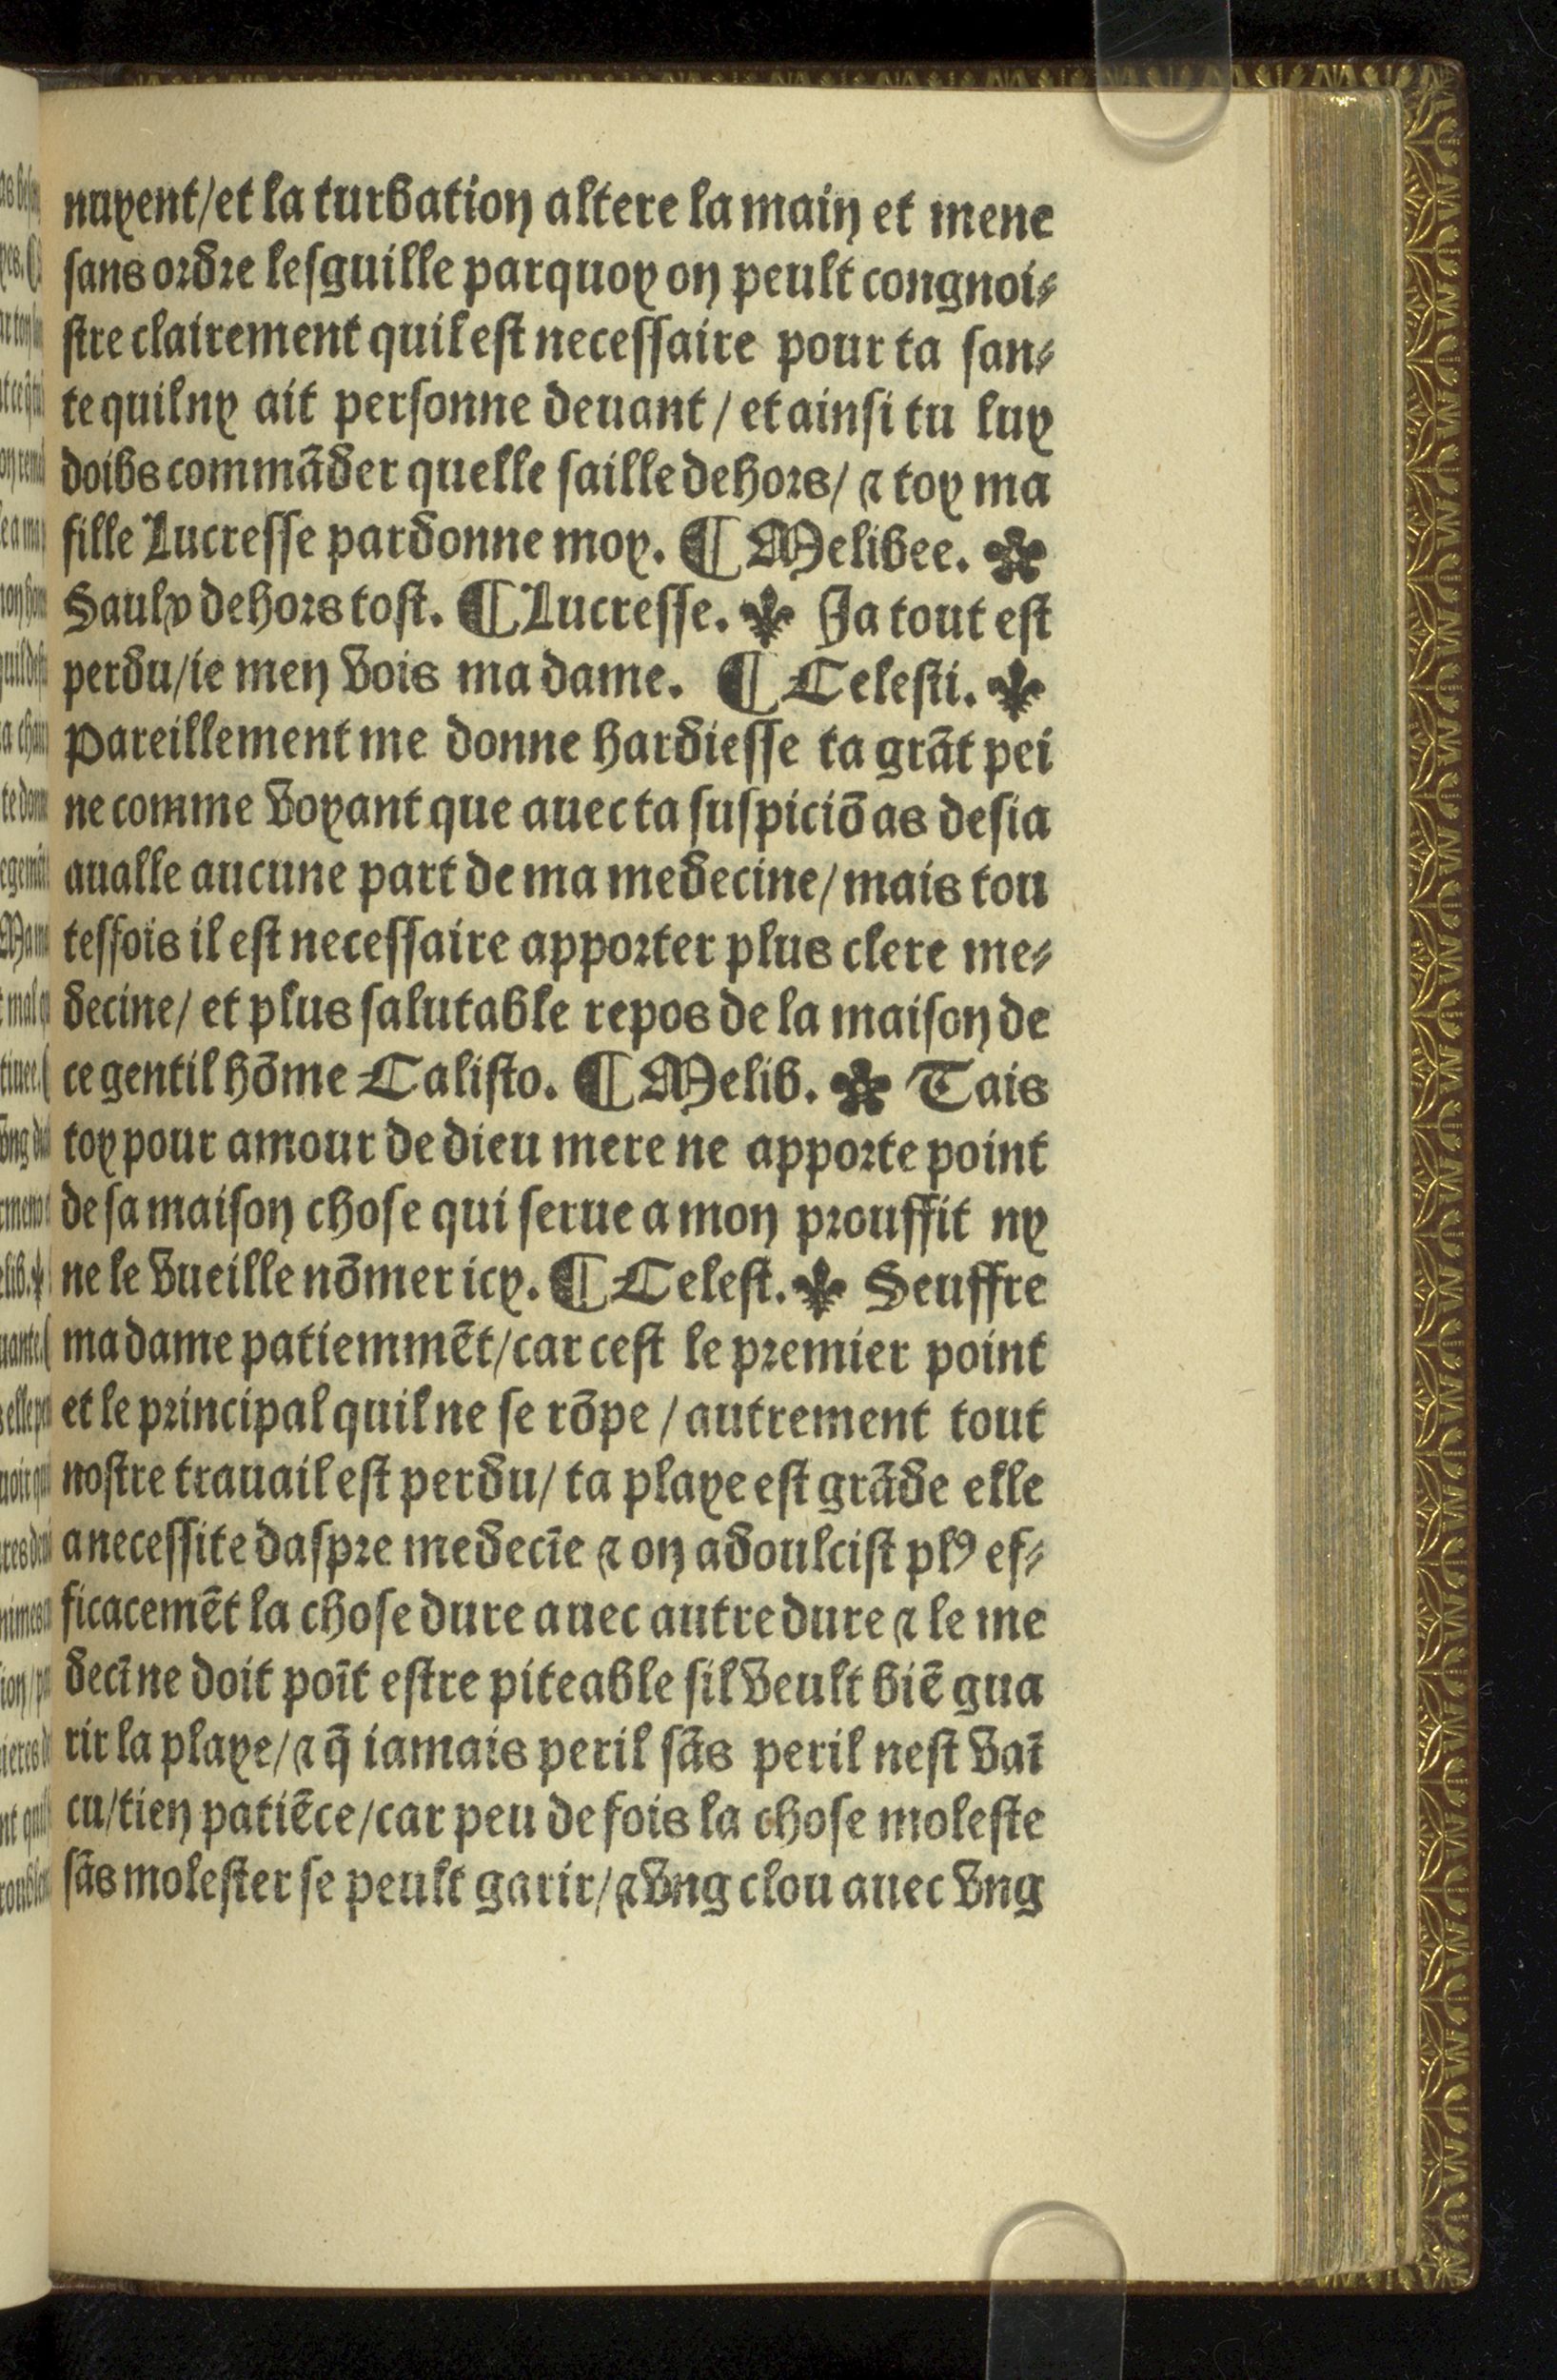 nuyent/et la turbation altere la main et mene
sans ordre lesguille parquoy on peult congnoi⸗
stre clairement quil est necessaire pour ta san⸗
te quilny ait personne deuant / et ainsi tu luy
doibs commāder quelle saille dehors/ ⁊ toy ma
fille Lucresse pardonne moy. ¶ Melibee. ✿
Saulx dehors tost. ¶ Lucresse. ⚜ Ja tout est
perdu/ie men vois ma dame. ¶ Celesti. ⚜
Pareillement me donne hardiesse ta grāt pei
ne comme voyant que auec ta suspiciō as desia
aualle aucune part de ma medecine/ mais tou
tesfois il est necessaire apporter plus clere me⸗
decine/ et plus salutable repos de la maison de
ce gentil hōme Calisto. ¶ Melib. ✿ Tais
toy pour amour de dieu mere ne apporte point
de sa maison chose qui serue a mon prouffit ny
ne le vueille nōmer icy. ¶ Celest. ⚜ Seuffre
ma dame patiemmēt/car cest le premier point
et le principal quil ne se rōpe / autrement tout
nostre trauail est perdu/ ta playe est grāde elle
a necessite daspre medecīe ⁊ on adoulcist plꝰ ef⸗
ficacemēt la chose dure auec autre dure ⁊ le me
decī ne doit poīt estre piteable sil veult biē gua
rir la playe/ ⁊ q̄ iamais peril sās peril nest vaī
cu/tien patiēce/car peu de fois la chose moleste
sās molester se peult garir/ ⁊ vng clou auec vng